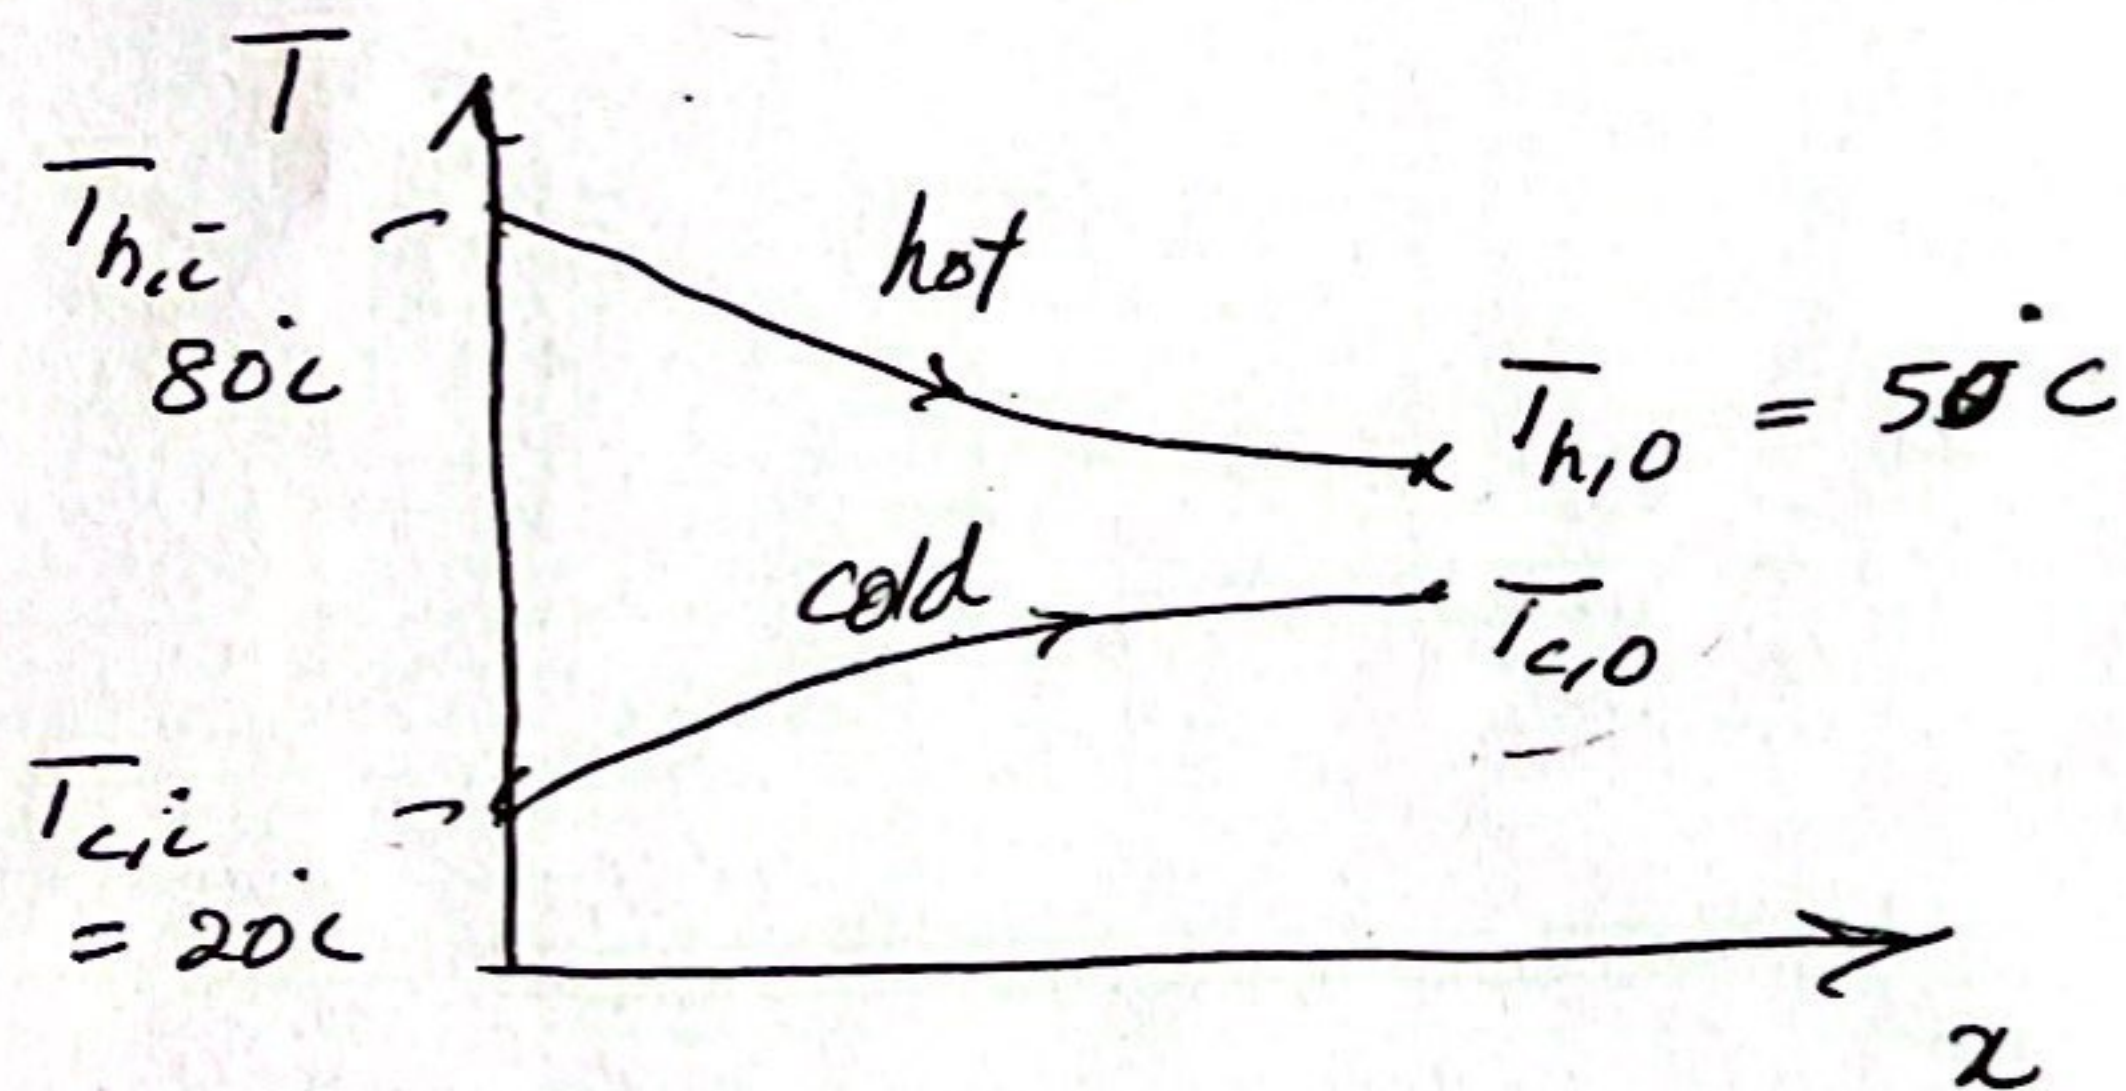 T
T_h,i
80°C
hot
T_h,o = 50°C
cold
T_c,o
T_c,i
= 20°C
x